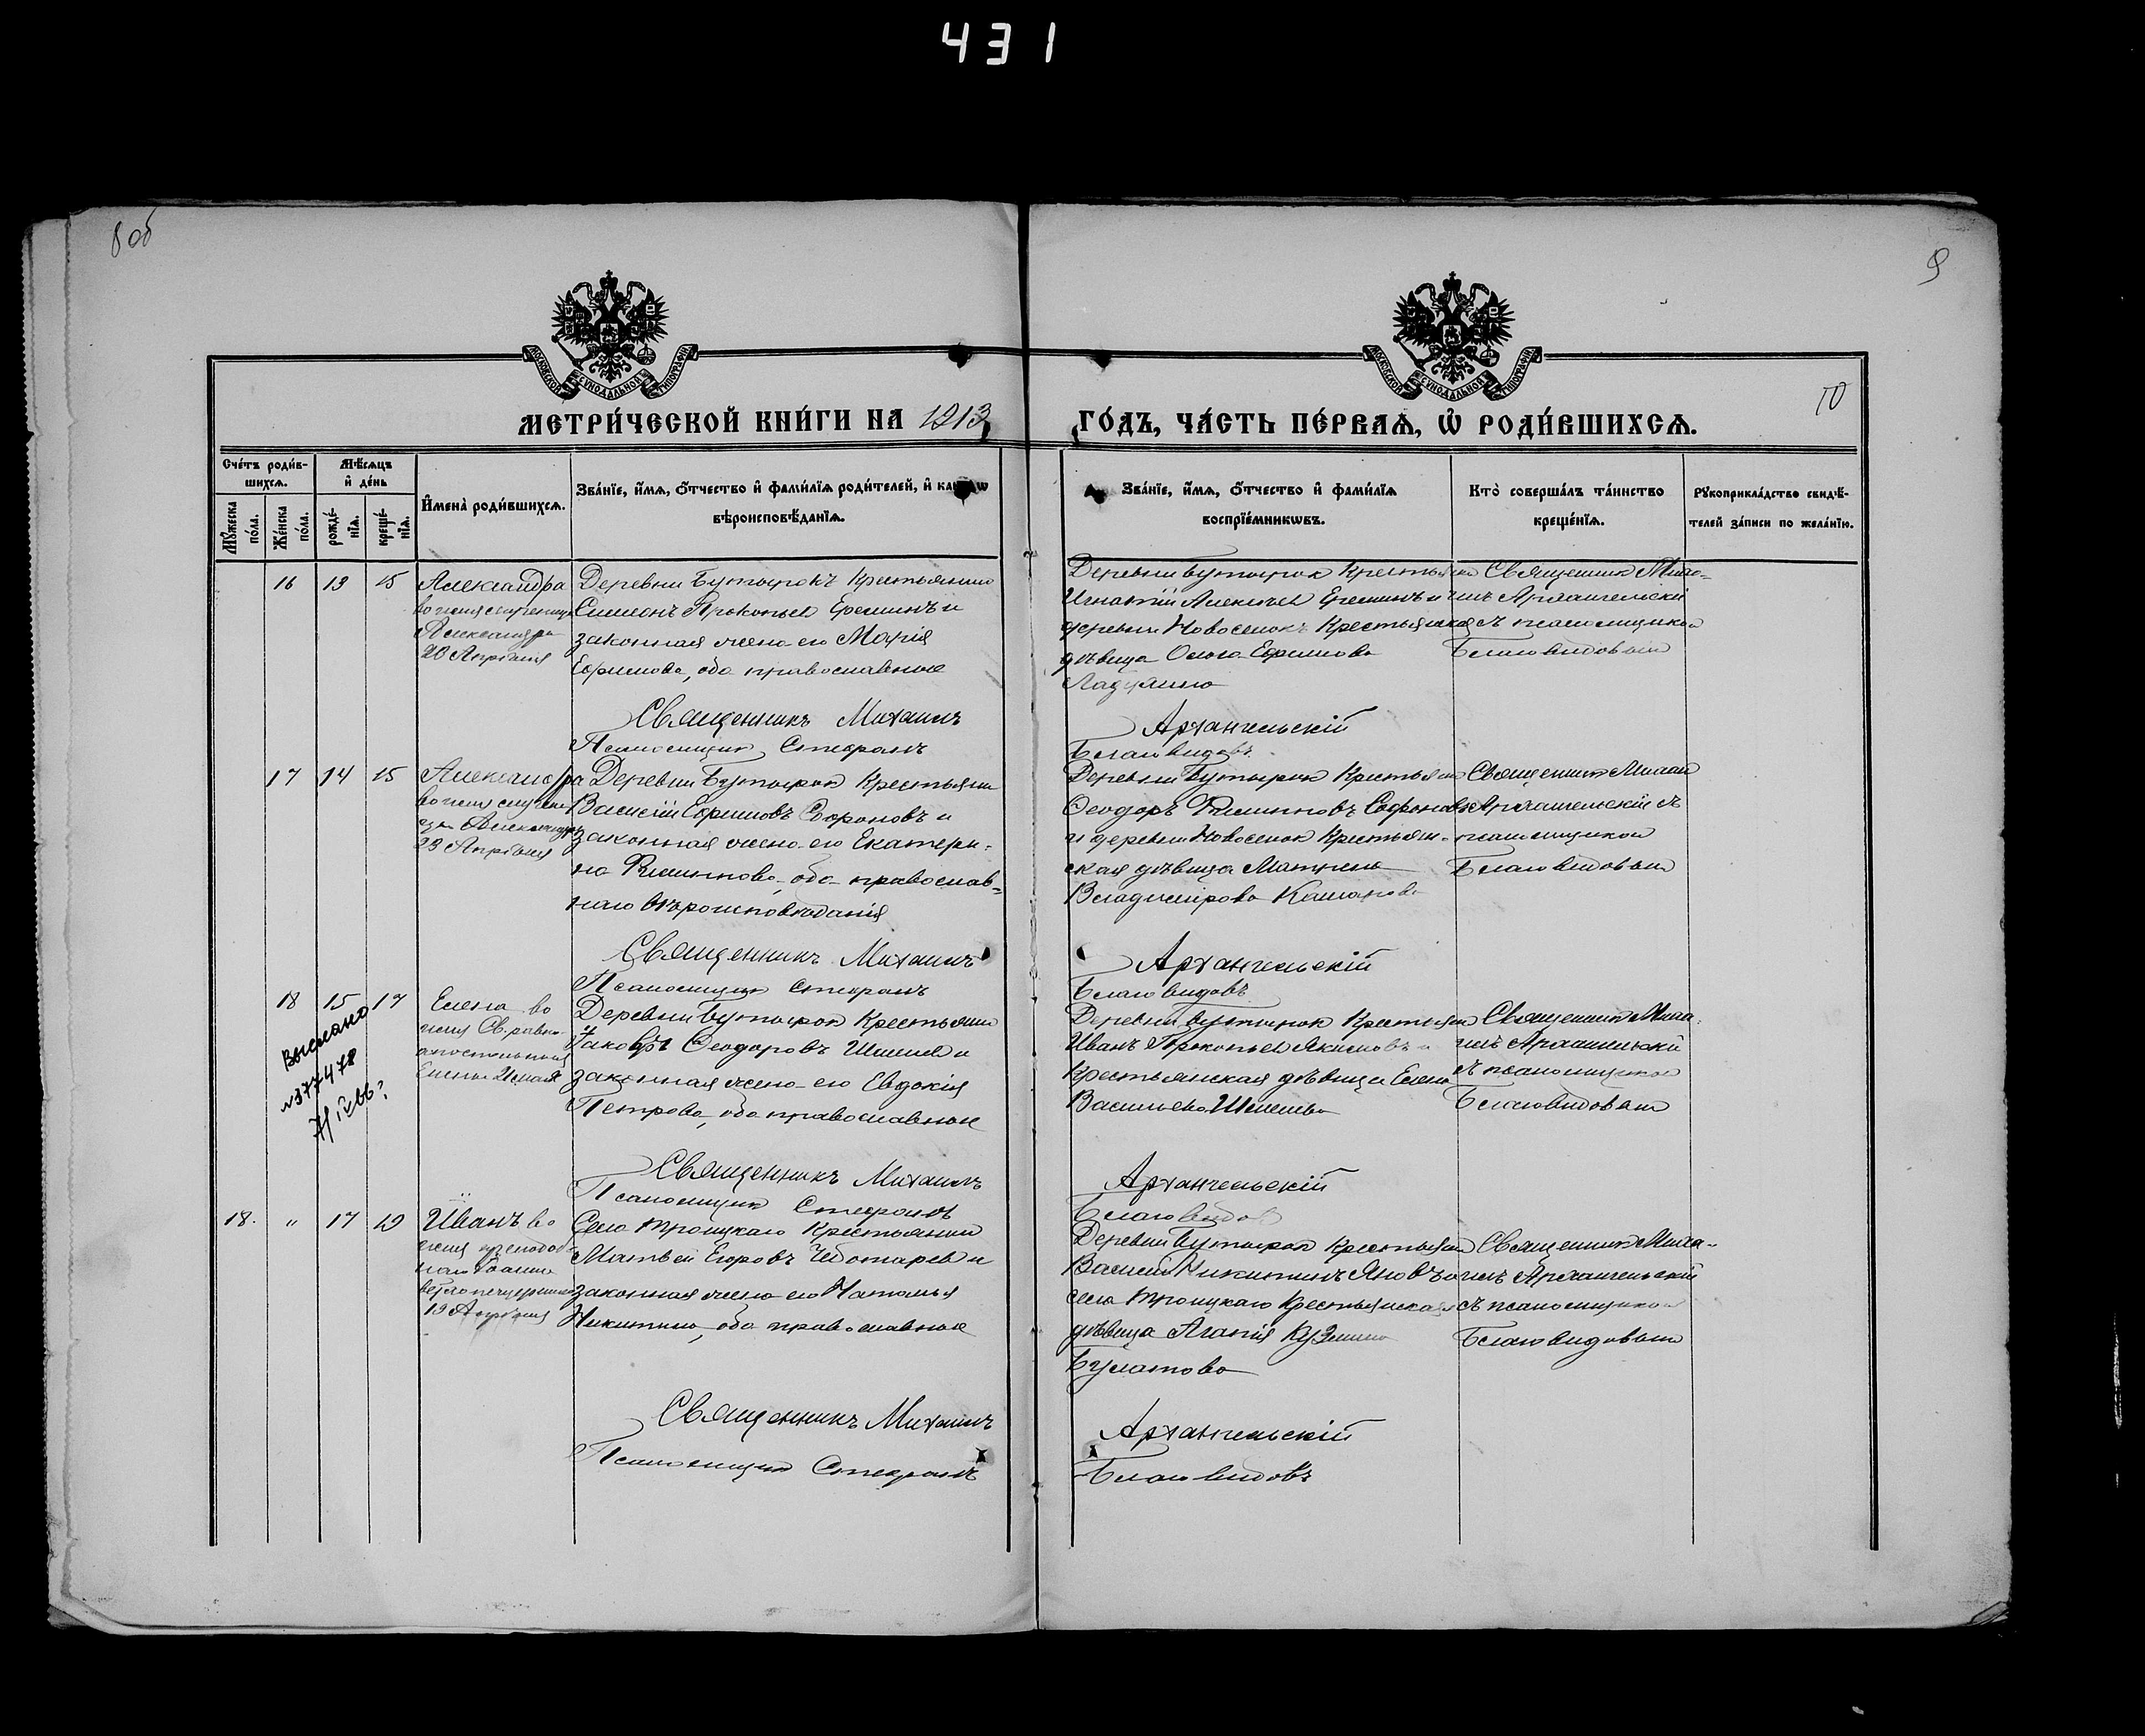 431
8 об
9
10
МОСКОВСКОЙ СѴНОДАЛЬНОЙ ТИПОГРАФІИ
МОСКОВСКОЙ СѴНОДАЛЬНОЙ ТИПОГРАФІИ
МЕТРИ́ЧЕСКОЙ КНИ́ГИ НА 1913
ГО́ДЪ, ЧА́СТЬ ПЕ́РВАѦ, Ѽ РОДИ́ВШИХСѦ.
Сче́тъ роди́в-
шихсѧ.
Мѣ́сѧцъ
и҆ де́нь
Мꙋ́жеска по́ла.
Же́нска по́ла.
рожде́-
нїѧ.
креще́-
нїѧ.
И҆мена̀ роди́вшихсѧ.
Зва́нїе, и҆́мѧ, ѻ҆́тчество и҆ фами́лїѧ роди́телей, и҆
вѣроисповѣ́данїѧ.
Зва́нїе, и҆́мѧ, ѻ҆́тчество и҆ фами́лїѧ
воспрїе́мникѡвъ.
Кто̀ соверша́лъ та́инство
креще́нїѧ.
Рꙋкоприкла́дство свидѣ́-
телей за́писи по жела́нїю.
16 13 15
Александра
Александры
20 Апрѣля
Деревни Бутырокъ крестьянинъ
Симеонъ Прокопьев Еремин и
законная жена его Марія
Ефимова, оба православные
Священникъ Михаилъ
Псаломщикъ Стефанъ
Деревни Бутырок крестьянин
Игнатій Алексѣев Еремин и
деревни Новоселокъ крестьянская
дѣвица Ольга Ефимова
Архангельскій
Благовидовъ
Священник Миха-
илъ Архангельскій
съ псаломщиком
Благовидовым
17 14 15
Александра
23 Апрѣля
Деревни Бутырок крестьянин
Василій Ефимовъ Софроновъ и
законная жена его Екатери-
на Филиппова, оба православ-
наго вѣроисповѣданія
Священникъ Михаилъ
Псаломщикъ Стефанъ
Деревни Бутырок крестьянин
Ѳеодоръ Филипповъ Софроновъ
и деревни Новоселок крестьян-
ская дѣвица Матрена
Владимірова
Архангельскій
Благовидовъ
Священник Михаил
Архангельскій съ
псаломщиком
Благовидовым
18 15 17
Выслано
№ 377478
Елена во
имя Св. равно-
апостольныя
Елены 21 мая
Деревни Бутырок крестьянин
Іаковъ Ѳеодоровъ Шмелев и
законная жена его Евдокія
Петрова, оба православные
Священникъ Михаилъ
Псаломщик Стефанъ
Деревни Бутырок крестьянин
Иванъ Прокопьев Якимовъ и
крестьянская дѣвица Елена
Васильева Шмелева
Архангельскій
Благовидов
Священник Миха-
илъ Архангельскій
съ псаломщиком
Благовидовым
18. " 17 19
Иванъ во
имя преподоб-
наго Іоанна
19 Апрѣля
Села Троицкаго крестьянин
Матвей Егоровъ Чеботарев и
законная жена его Наталья
Никитина, оба православные
Священникъ Михаилъ
Псаломщик Стефанъ
Деревни Бутырок крестьянин
Василій Никитинъ Яновъ и
села Троицкаго крестьянская
дѣвица Агапія Кузмина
Булатова
Архангельскій
Благовидовъ
Священник Миха-
илъ Архангельскій
съ псаломщиком
Благовидовым